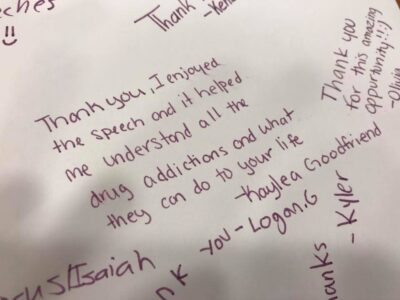 eches
Thank
-Ken
Thank you, I enjoyed
the speech and it helped
me understand all the
drug addictions and what
they can do to your life
-Kaylea Goodfriend
Thank you
for this amazing
oppurtunity!!:)
-Olivia
-you-Logan.G
sus/Isaiah
nk
hanks
-Kyler